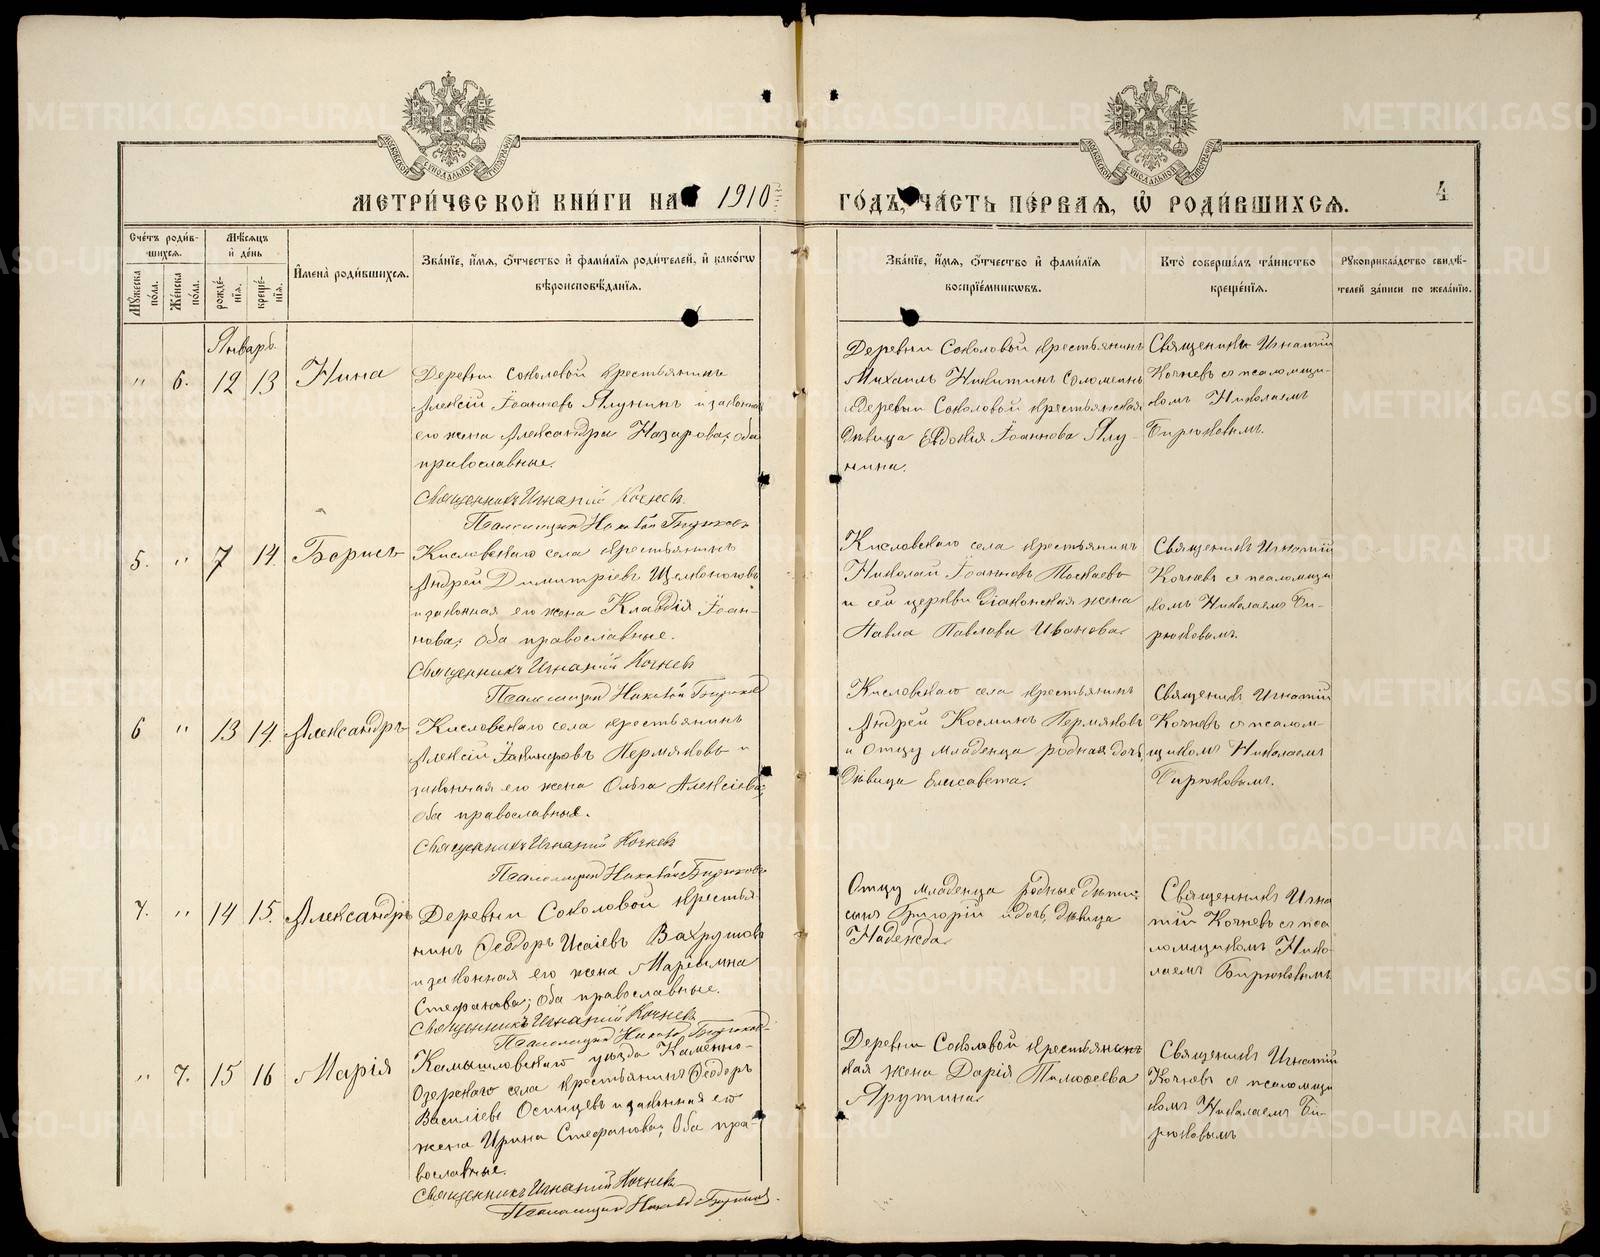 МЕТРИ́ЧЕСКОЙ КНИ́ГИ НА 1910
ГО́ДЪ, ЧА́СТЬ ПЕ́РВАЯ, Ѡ҆ РОДИ́ВШИХСЯ.
4
Сче́тъ роди́в-
шихся.
Му́жеска по́ла.
Же́нска по́ла.
Мѣ́сяцъ и҆ де́нь
рожде́-
нїя.
креще́-
нїя.
И҆мена̀ роди́вшихся.
Зва́нїе, и҆́мя, ѻ҆́тчество и҆ фами́лїя роди́телей, и҆ како́гѡ
вѣроисповѣ́данїя.
Зва́нїе, и҆́мя, ѻ҆́тчество и҆ фами́лїя
воспрїе́мниковъ.
Кто̀ соверша́лъ та́инство
креще́нїя.
Рꙋкоприкла́дство свидѣ́-
телей за́писи по жела́нїю.
Январь.
" 6. 12 13 Нина
Деревни Соколовой крестьянинъ
Алексій Іоанновъ Ялунинъ и законная
его жена Александра Назарова; оба
православные.
Священникъ Игнатій Кочневъ.
Псаломщикъ Николай Бирюковъ
Деревни Соколовой крестьянинъ
Михаилъ Никитинъ Соломеинъ
и деревни Соколовой крестьянская
дѣвица Евдокія Іоаннова Ялу-
нина.
Священникъ Игнатій
Кочневъ съ псаломщи-
комъ Николаемъ
Бирюковымъ.
5. " 7 14. Борисъ
Кисловскаго села крестьянинъ
Андрей Димитріевъ Щелконоговъ
и законная его жена Клавдія Іоан-
нова; оба православные.
Священникъ Игнатій Кочневъ
Псаломщикъ Николай Бирюковъ
Кисловскаго села крестьянинъ
Николай Іоанновъ
и сей церкви діаконская жена
Павла Павлова Иванова.
Священникъ Игнатій
Кочневъ съ псаломщи
комъ Николаемъ Би-
рюковымъ.
6 " 13 14. Александръ
Кисловскаго села крестьянинъ
Алексій Пермяковъ и
законная его жена Ольга Алексіева;
оба православные.
Священникъ Игнатій Кочневъ
Псаломщикъ Николай Бирюковъ
Кисловскаго села крестьянинъ
Андрей Косминъ Пермяковъ
и отцу младенца родная дочь,
дѣвица Елисавета.
Священникъ Игнатій
Кочневъ съ псалом-
щикомъ Николаемъ
Бирюковымъ.
7. " 14 15. Александръ
Деревни Соколовой крестья-
нинъ Ѳеодоръ Исаіевъ Вахрушевъ
и законная его жена Маріамна
Стефанова; оба православные.
Священникъ Игнатій Кочневъ
Псаломщикъ Николай Бирюковъ
Отцу младенца родные дѣти:
сынъ Григорій и дочь, дѣвица
Надежда.
Священникъ Игна
тій Кочневъ съ пса
ломщикомъ Нико-
лаемъ Бирюковымъ
" 7. 15 16 Марія
Камышловскаго уѣзда Каменно-
Озерскаго села крестьянинъ Ѳеодоръ
Василіевъ Осинцевъ и законная его
жена Ирина Стефанова; оба пра-
вославные.
Священникъ Игнатій Кочневъ
Псаломщикъ Николай Бирюковъ.
Деревни Соколовой крестьянс
кая жена Дарія Тимоѳеева
Ярутина.
Священникъ Игнатій
Кочневъ съ псаломщи
комъ Николаемъ Би-
рюковымъ
METRIKI.GASO-URAL.RU